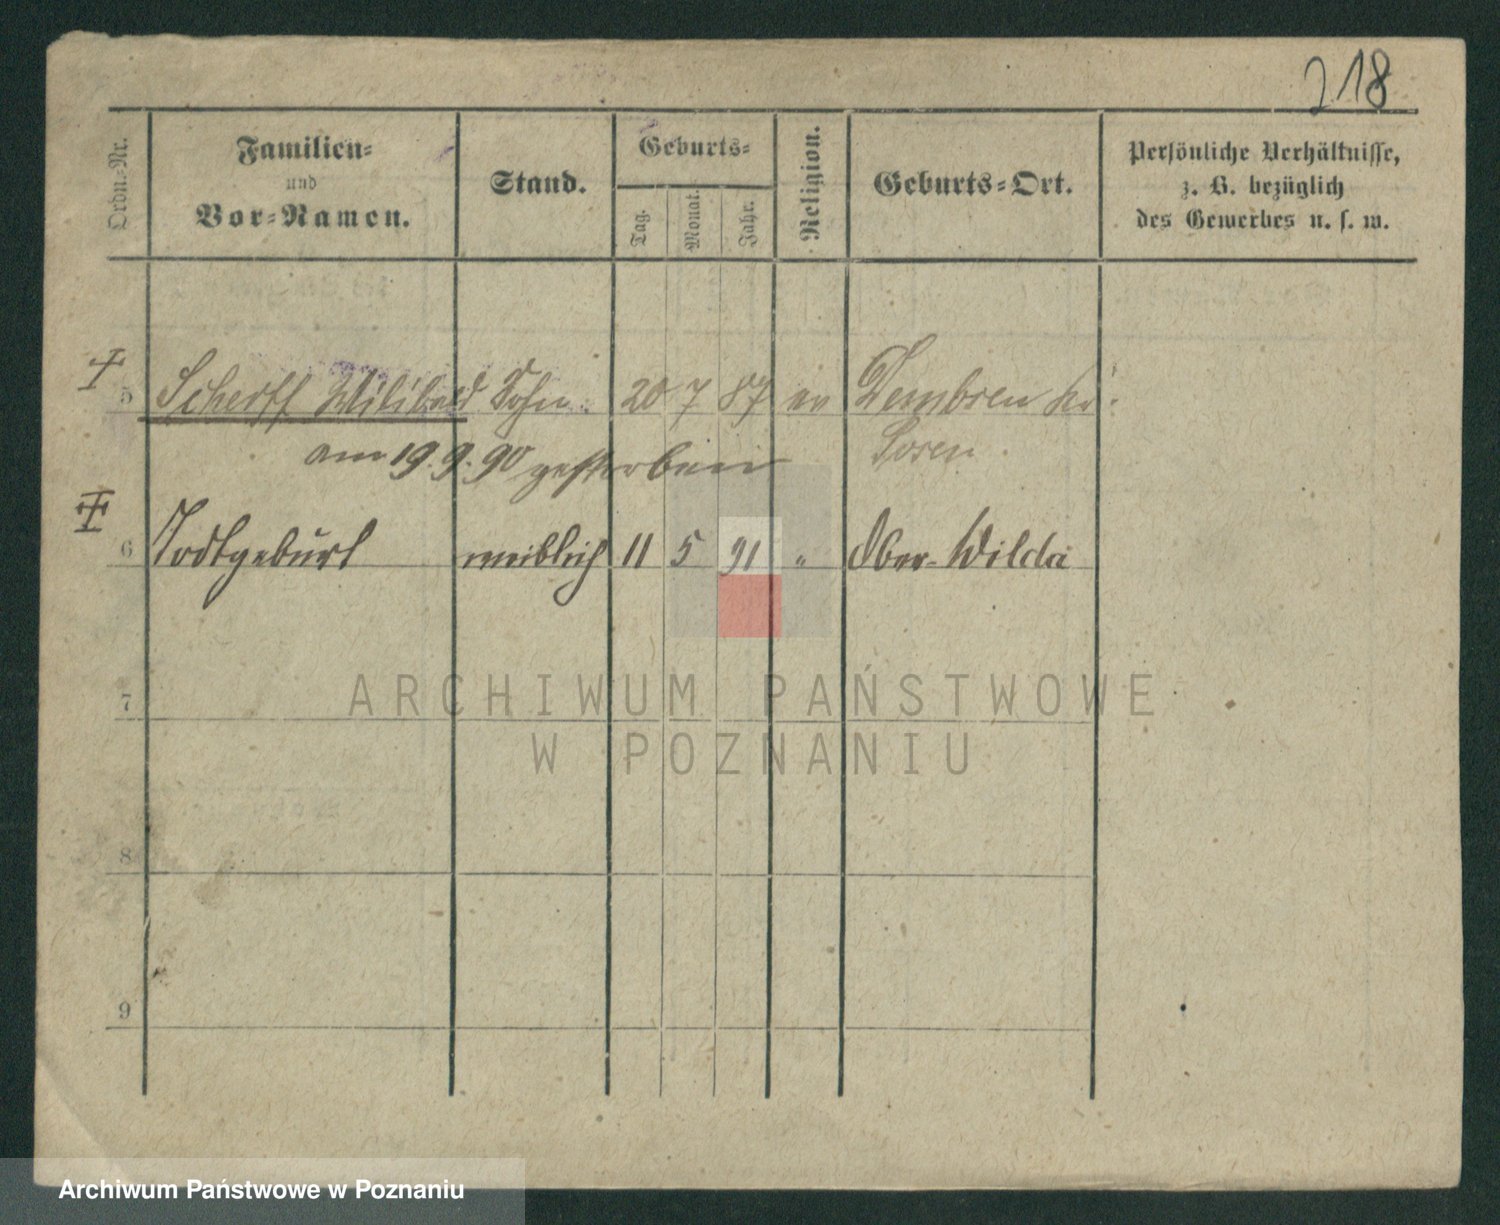 218
Ordn.-Nr.
Familien-
und
Vor-Namen.
Stand.
Geburts-
Tag.
Monat.
Jahr.
Religion.
Geburts-Ort.
Persönliche Verhältnisse,
z. B. bezüglich
des Gewerbes u. s. w.
5 Scherff Wilibald Sohn. 20 7 87 ev Dembsen Kr.
Posen
am 19. 9. 90 gestorben
6 Todtgeburt weiblich 11 5 91 " Ober-Wilda
7
ARCHIWUM PAŃSTWOWE
W POZNANIU
8
9
Archiwum Państwowe w Poznaniu